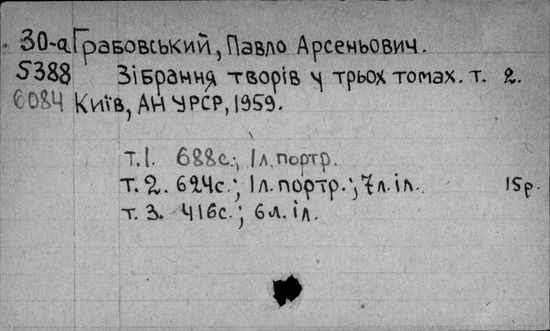 30-а Грабовський, Павло Арсеньович.
5388 Зібрання творів у трьох томах. т. 2.
6084 Київ, АН УРСР, 1959.
т.1. 688с.; 1л.портр.
т.2. 624с.; 1л.портр.; 7л.іл. 15р.
т.3. 416с.; 6л.іл.